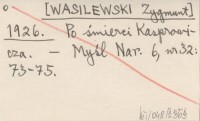 [WASILEWSKI Zygmunt]
1926. Po śmierci Kasprowi-
cza. — Myśl Nar. 6, nr 32:
73-75.